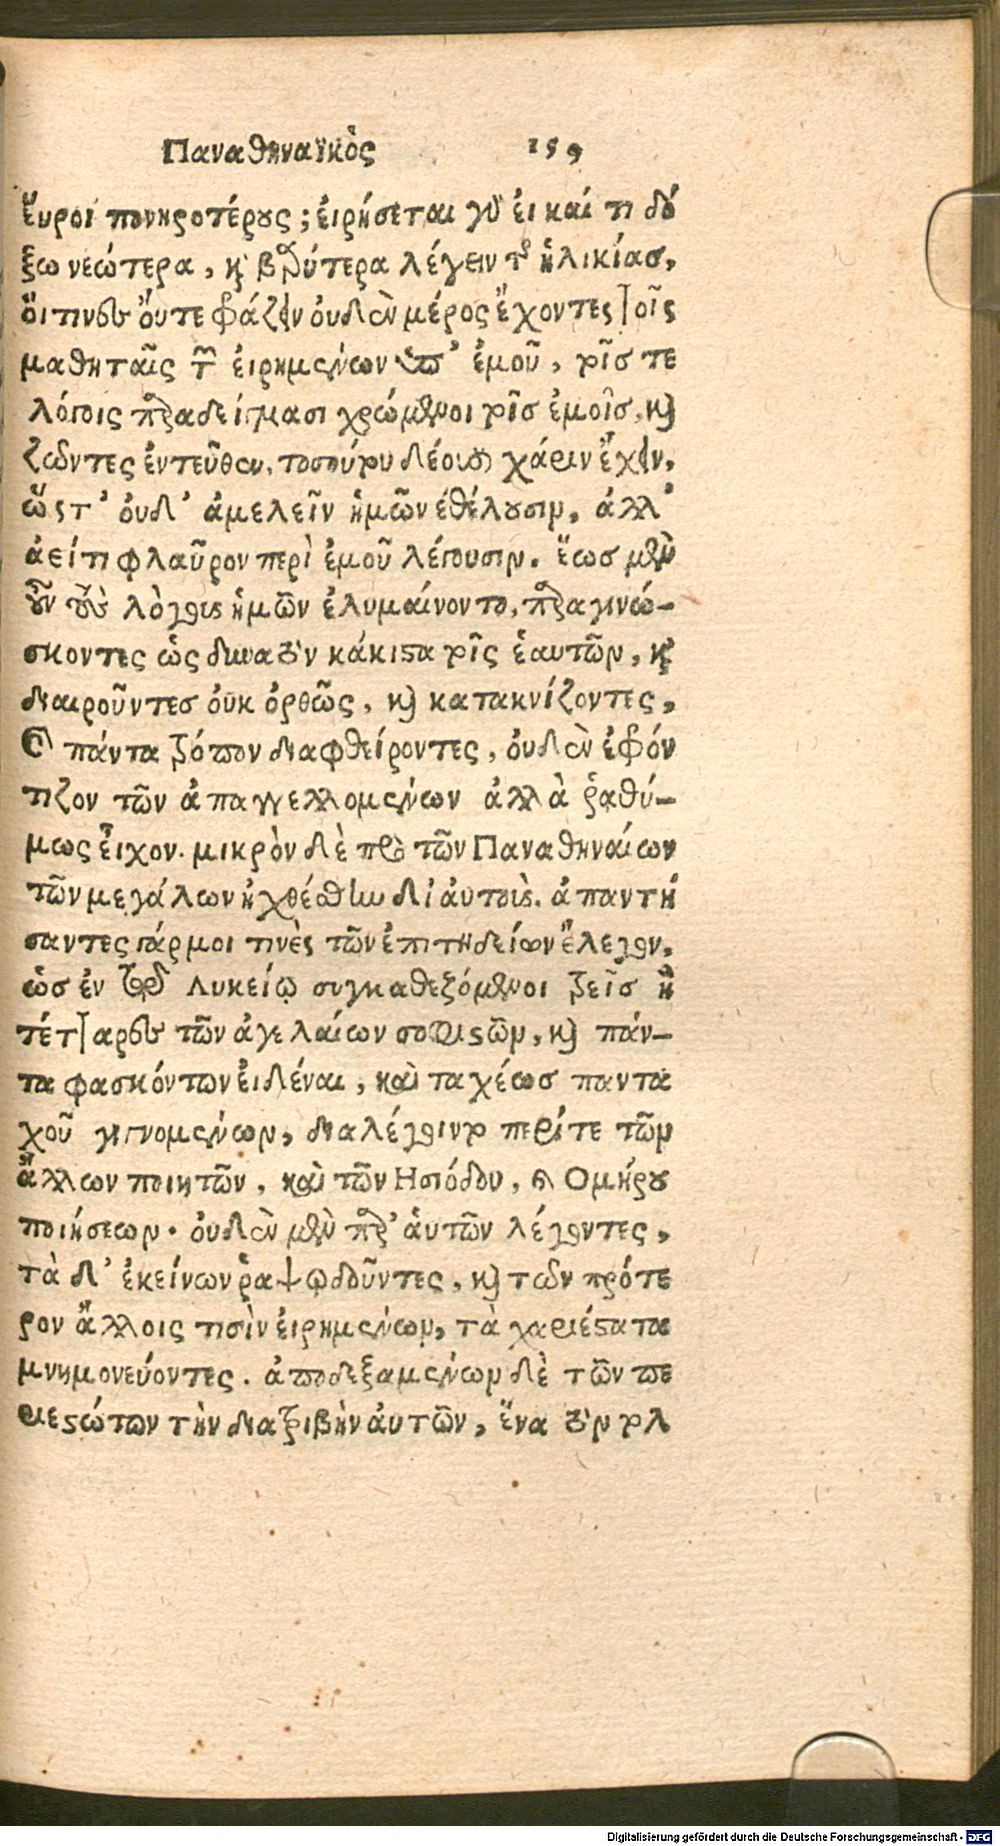 Παναθηναϊκὸς 159
ἕυροι πονηροτέρους; ἐιρήσεται γὰρ ἐι καί τι δό
ξω νεώτερα, κ̀ βραχύτερα λέγειν τῆς ἡλικίας,
ὅιτινες ὄυτε φράζειν ὀυδὲν μέρος ἔχοντες τοῖς
μαθηταῖς τῶν ἐιρημένων ὑπ’ ἐμοῦ, τοῖς τε
λόγοις παραδείγμασι χρώμενοι τοῖς ἐμοῖς, κ̀
ζῶντες ἐντεῦθεν, τοσούτου δέουσι χάριν ἔχειν,
ὥστ’ ὀυδ’ ἀμελεῖν ἡμῶν ἐθέλουσιν, ἀλλ’
ἀεί τι φλαῦρον περὶ ἐμοῦ λέγουσιν. ἕως μὲν
οὖν τοὺς λόγους ἡμῶν ἐλυμαίνοντο, παραγινώ-
σκοντες ὡς δυνατὸν κάκιστα τοῖς ἑαυτῶν, κ̀
διαιροῦντες ὀυκ ὀρθῶς, κ̀ κατακνίζοντες,
κ̀ πάντα τρόπον διαφθείροντες, ὀυδὲν ἐφρόν
τιζον τῶν ἀπαγγελλομένων ἀλλὰ ῥαθύ-
μως εἶχον. μικρὸν δὲ πρὸ τῶν Παναθηναίων
τῶν μεγάλων ἠχθέσθην δι’ ἀυτούς. ἀπαντή
σαντες γάρ μοι τινὲς τῶν ἐπιτηδείων ἔλεγον,
ὡς ἐν τῷ Λυκείῳ συγκαθεζόμενοι τρεῖς ἢ
τέτταρες τῶν ἀγελαίων σοφιστῶν, κ̀ πάν-
τα φασκόντων ἐιδέναι, καὶ ταχέως παντα
χοῦ γιγνομένων, διαλέγοιντο περί τε τῶν
ἄλλων ποιητῶν, καὶ τῶν Ησιόδου, κ̀ Ομήρου
ποιήσεων. ὀυδὲν μὲν παρ’ ἁυτῶν λέγοντες,
τὰ δ’ ἐκείνων ῥαψῳδοῦντες, κ̀ τῶν πρότε
ρον ἄλλοις τισὶν ἐιρημένων, τὰ χαριέστατα
μνημονεύοντες. ἀποδεξαμένων δὲ τῶν πε
ριεστώτων τὴν διατριβὴν ἀυτῶν, ἕνα τὸν τολ
Digitalisierung gefördert durch die Deutsche Forschungsgemeinschaft - DFG